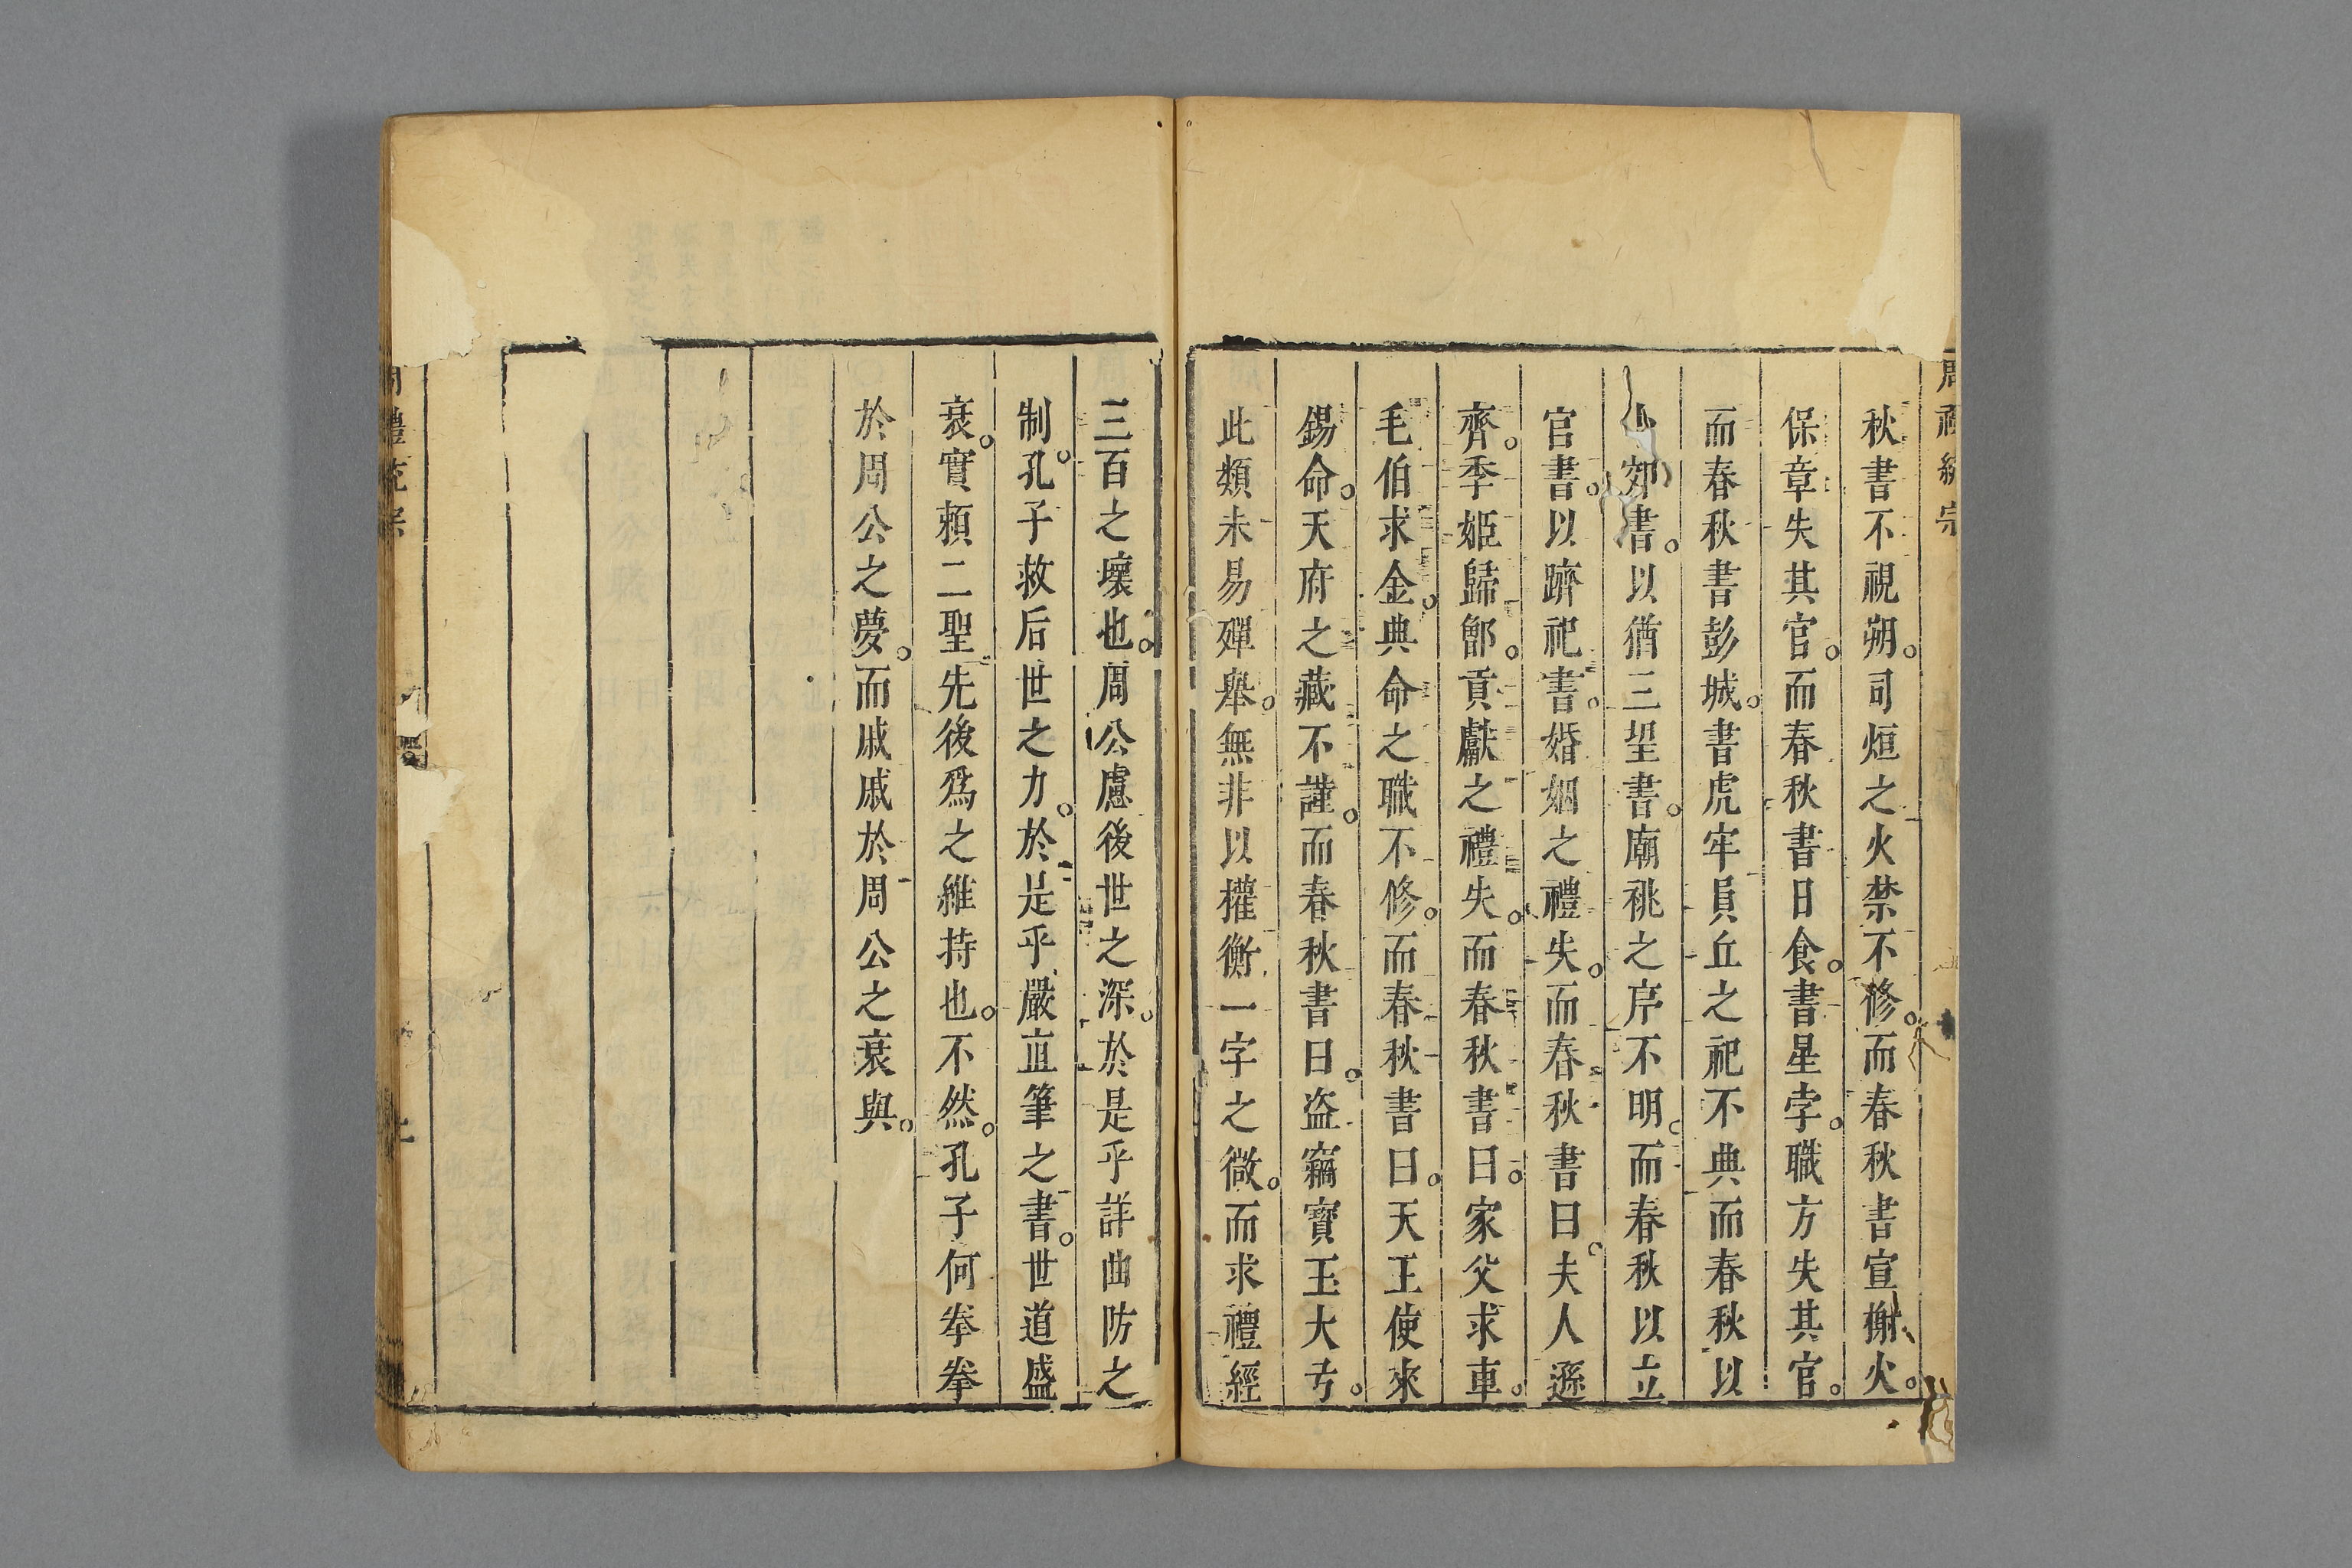 秋書不視朔。司烜之火禁不修。而春秋書宣榭火。
保章失其官。而春秋書日食。書星孛。職方失其官。
而春秋書彭城。書虎牢員丘之祀不典而春秋以
郊書。以猶三望書。廟祧之序不明。而春秋以立
官書。以躋祀書。婚姻之禮失。而春秋書曰。夫人遜
齊。季姬歸鄫。貢獻之禮失。而春秋書曰。家父求車。
毛伯求金。典命之職不修。而春秋書曰。天王使來
錫命。天府之藏不謹。而春秋書曰。盗竊寶玉大弓。
此類未易殫舉。無非以權衡一字之微。而求禮經
三百之壞也。周公慮後世之深。於是乎詳曲防之
制。孔子救后世之力。於是乎嚴直筆之書。世道盛
衰。實賴二聖先後爲之維持也。不然。孔子何拳拳
於周公之夢。而戚戚於周公之衰與。
禮
宗